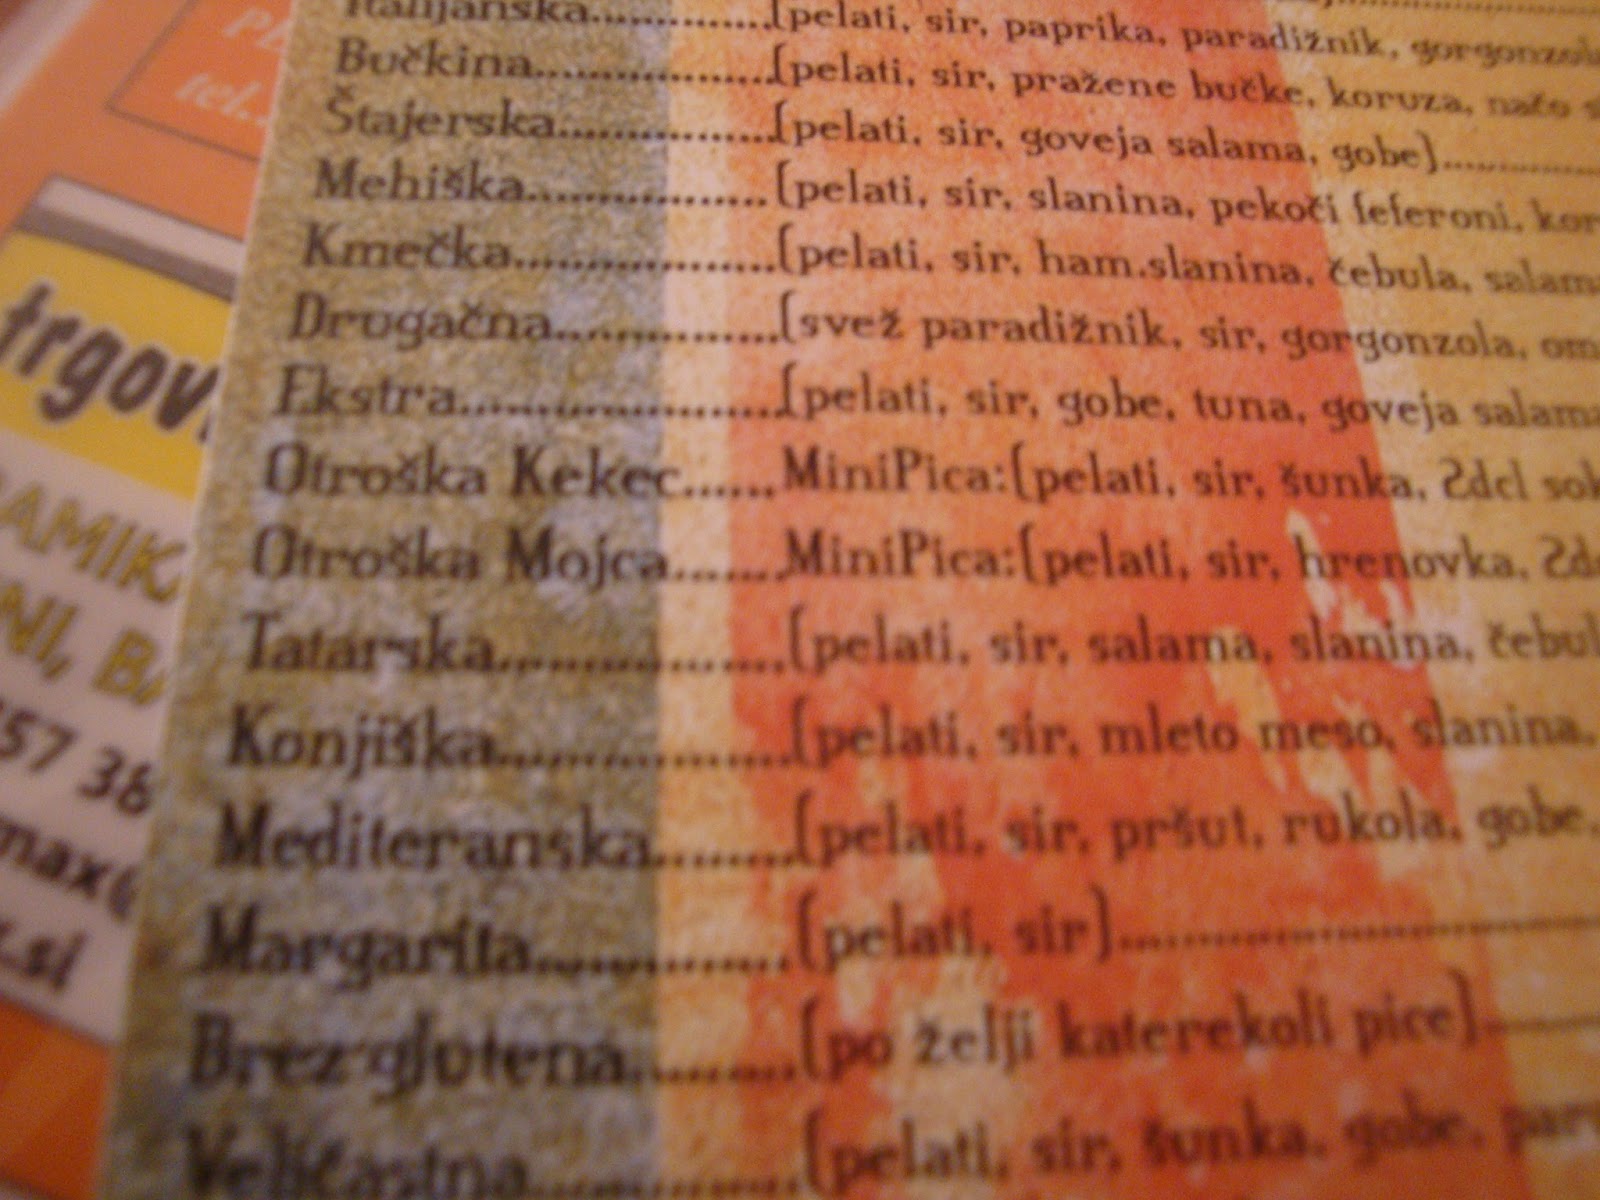 Italijanska..................(pelati, sir, paprika, paradižnik, gorgonzola
Bučkina..................(pelati, sir, pražene bučke, koruza, načo
Štajerska..................(pelati, sir, goveja salama, gobe)..................
Mehiška..................(pelati, sir, slanina, pekoči feferoni, kor
Kmečka..................(pelati, sir, ham.slanina, čebula, salam
Drugačna..................(svež paradižnik, sir, gorgonzola, om
Ekstra..................(pelati, sir, gobe, tuna, goveja salama
Otroška Kekec.......MiniPica:(pelati, sir, šunka, 2dcl sok
Otroška Mojca.......MiniPica:(pelati, sir, hrenovka, 2dc
Tatarska..................(pelati, sir, salama, slanina, čebul
Konjiška..................(pelati, sir, mleto meso, slanina,
Mediteranska..........(pelati, sir, pršut, rukola, gobe,
Margarita..................(pelati, sir)..................
Brez glutena..........(po želji katerekoli pice)..........
Veličastna..................(pelati, sir, šunka, gobe,
tel.
trgov
RAMIK
NI, BA
357 38
max@
.si